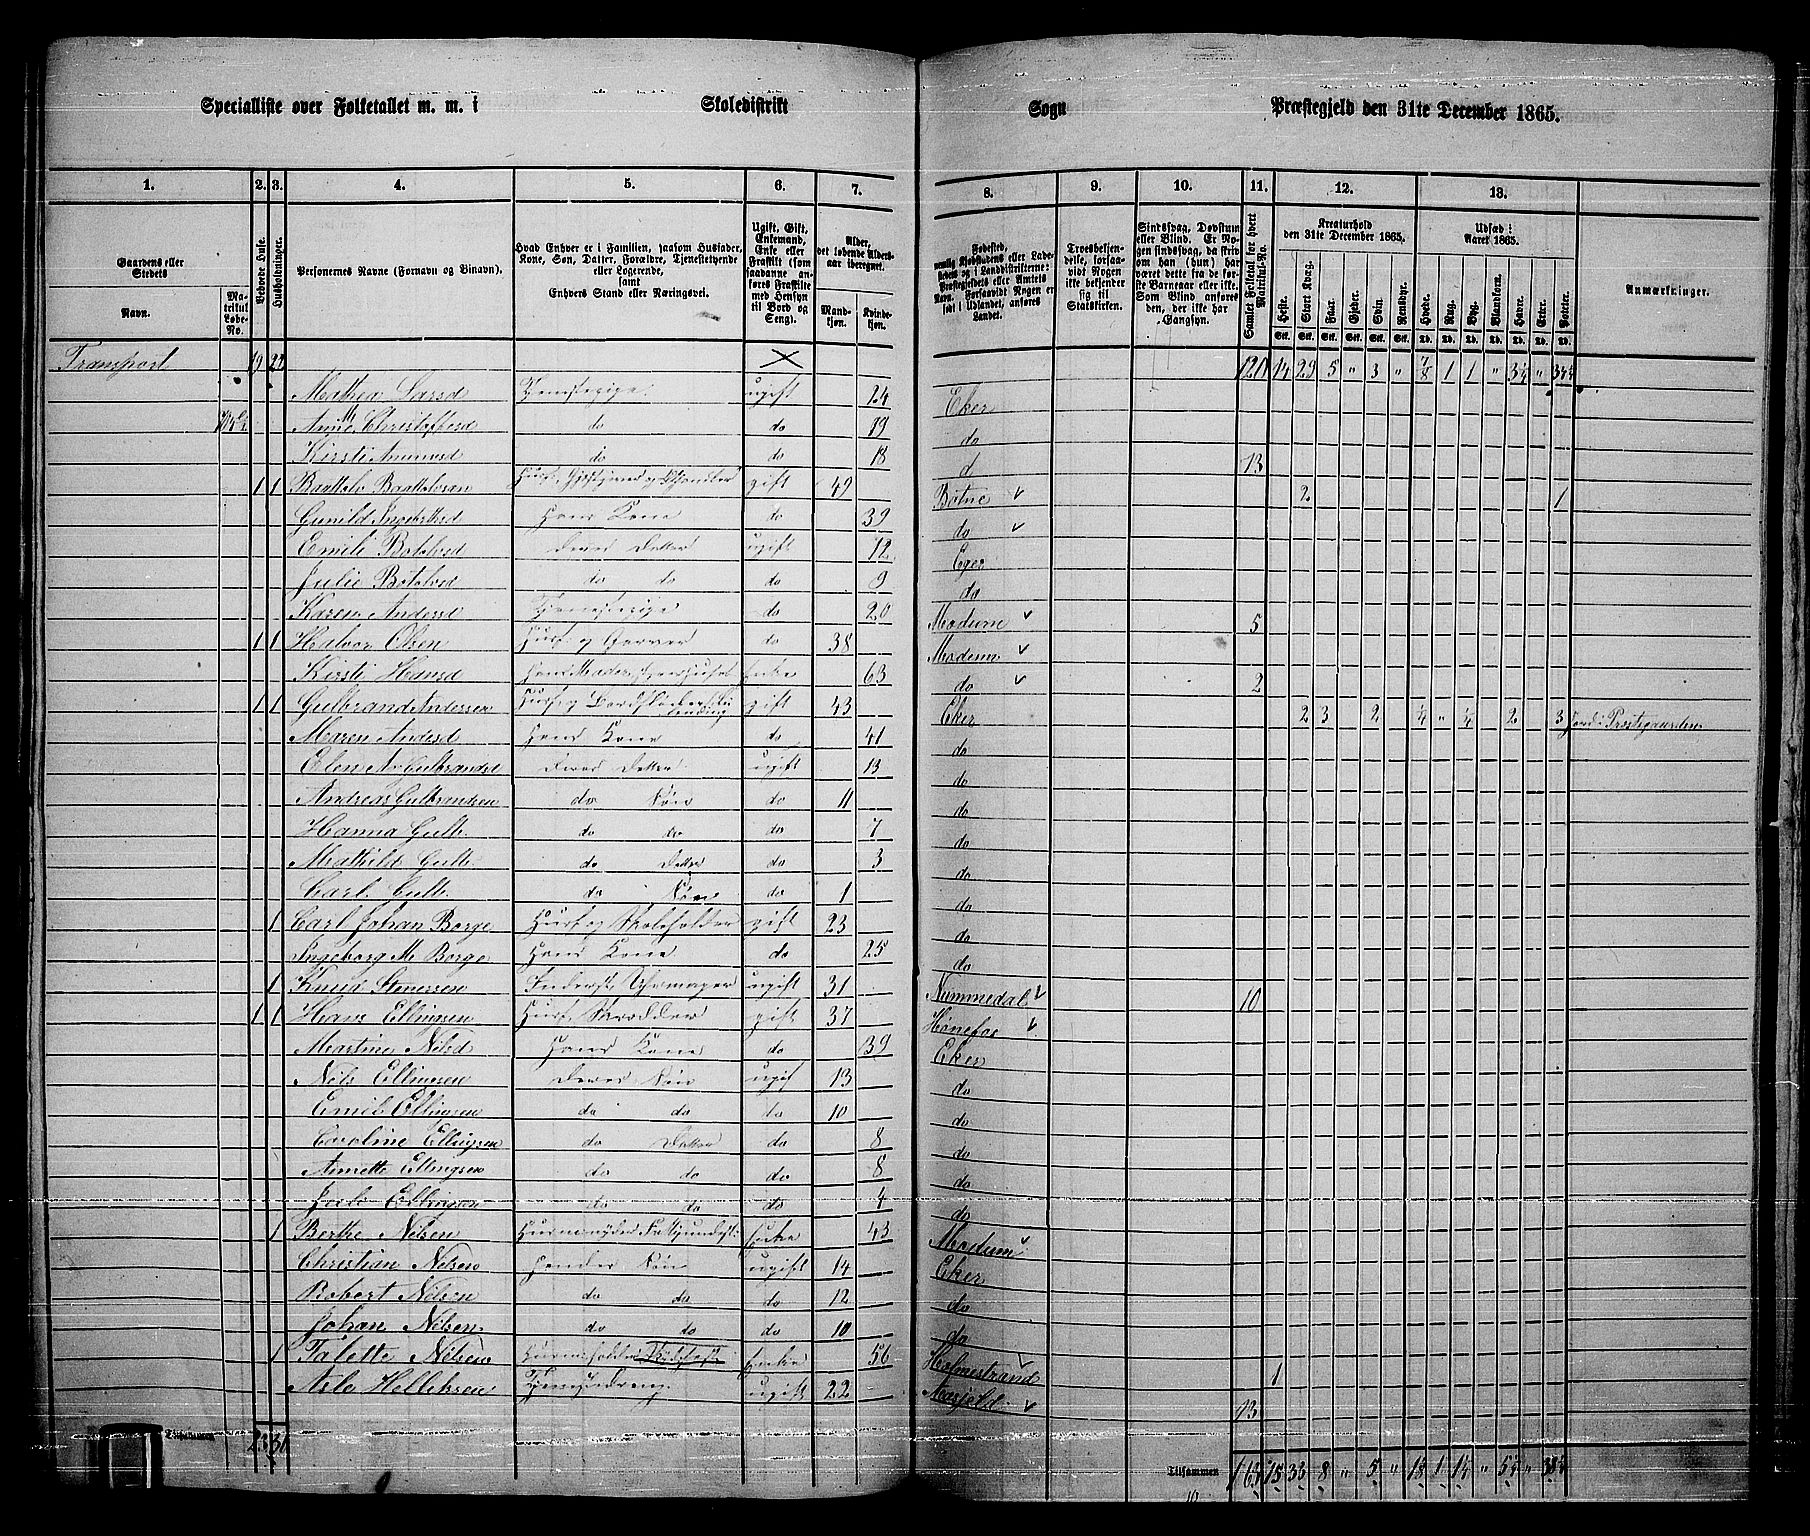 Specialliste over Folketallet m. m. i Skoledistrikt Sogn Præstegjeld den 31te December 1865.
1. 2. 3. 4. 5. 6. 7. 8. 9. 10. 11. 12. 13.
Gaardens eller Stedets
Navn.
Matrikul Løbe-No.
Beboede Huse.
Husholdninger.
Personernes Navne (Fornavn og Binavn).
Hvad Enhver er i Familien, saasom Husfader, Kone, Søn, Datter, Forældre, Tjenestetyende eller Logerende,
samt
Enhvers Stand eller Næringsvei.
Ugift, Gift, Enkemand, Enke eller Fraskilt (som saadanne anføres Fraskilte med Hensyn til Bord og Seng).
Alder, det løbende Alders-aar iberegnet.
Mand-kjøn. Kvinde-kjøn.
Fødested, nemlig Kjøbstadens eller Ladestedets og i Landdistrikterne: Præstegjeldets eller Amtets Navn. Forsaavidt Nogen er født i Udlandet, anføres Landet.
Troesbekjendelse, forsaavidt Nogen ikke bekjender sig til Statskirken.
Sindssvag, Døvstum eller Blind. Er Nogen sindssvag, da skrives om han (hun) har været dette fra de første Barneaar eller ikke. Som Blind anføres den, der ikke har Gangsyn.
Samlet Folketal for hvert Matrikul-No.
Kreaturhold den 31te December 1865.
Heste. Stort Kvæg. Faar. Gjeder. Svin. Rensdyr.
Udsæd i Aaret 1865.
Hvede. Rug. Byg. Blandkorn. Havre. Erter. Poteter.
Anmærkninger.
Transport 19 22 120 14 29 5 " 3 " 7/8 1 1 "
Mathea Larsd Tjenestepige ugift 24 Eker
Anne M Christoffersd do do 19 do
Kirsti Amunsd do do 18 d 13
1 1 Baattolv Baattolvsen gift 49 Botne 2 1
Gunild Ingebretsd Hans Kone do 39 do
Emili Botolvsd Deres Datter ugift 12 Eger
Julie Botolvsd do do do 9 do
Karen Andersd Tjenestepige do 20 Modum 5
1 1 Halvor Olsen Husf. og Garver do 38 Modum
Kirsti Hansd Enke 63 do 2
1 1 Gulbrand Andersen gift 43 Eker 2 3 2 1/4 " 1/4 2 3 Jord i Præstegaarden
Maren Andersd Hans Kone do 41 do
Elen A. Gulbrandsd Deres Datter ugift 13 do
Andreas Gulbrandsen do Søn do 11 do
Hanna Gulb. do do do 7 do
Mathild Gulb do Datter do 3 do
Carl Gulb. do Søn do 1 do
1 Carl Johan Borge Husf. og Skoleholder gift 23 do
Ingeborg M. Borge Hans Kone do 25 do
1 Knud Stenersen Inderst, Skomager ugift 31 Nummedal 10
1 1 Hans Ellingsen Husf. Skrædder gift 37 Hønefos
Martine Nilsd Hans Kone do 39 Eker
Nils Ellingsen Deres Søn ugif 13 do
Emil Ellingsen do do do 10 do
Caroline Ellingsen do Datter do 8 do
Annette Ellingsen do do do 8 do
Ellingsen do do do 4 do
1 Berthe Nilsen Enke 43 Modum
Christian Nilsen Hendes Søn ugift 14 Eker
Robert Nilsen do do do 12 do
Johan Nilsen do do do 10 do
1 Talette Nilsen Enke 56 Holmestrand 1
Aslo Helliksen Tjenestedreng ugift 22 13
Tilsammen 23 30
Tilsammen 163 15 33 8 " 5 " 1 "